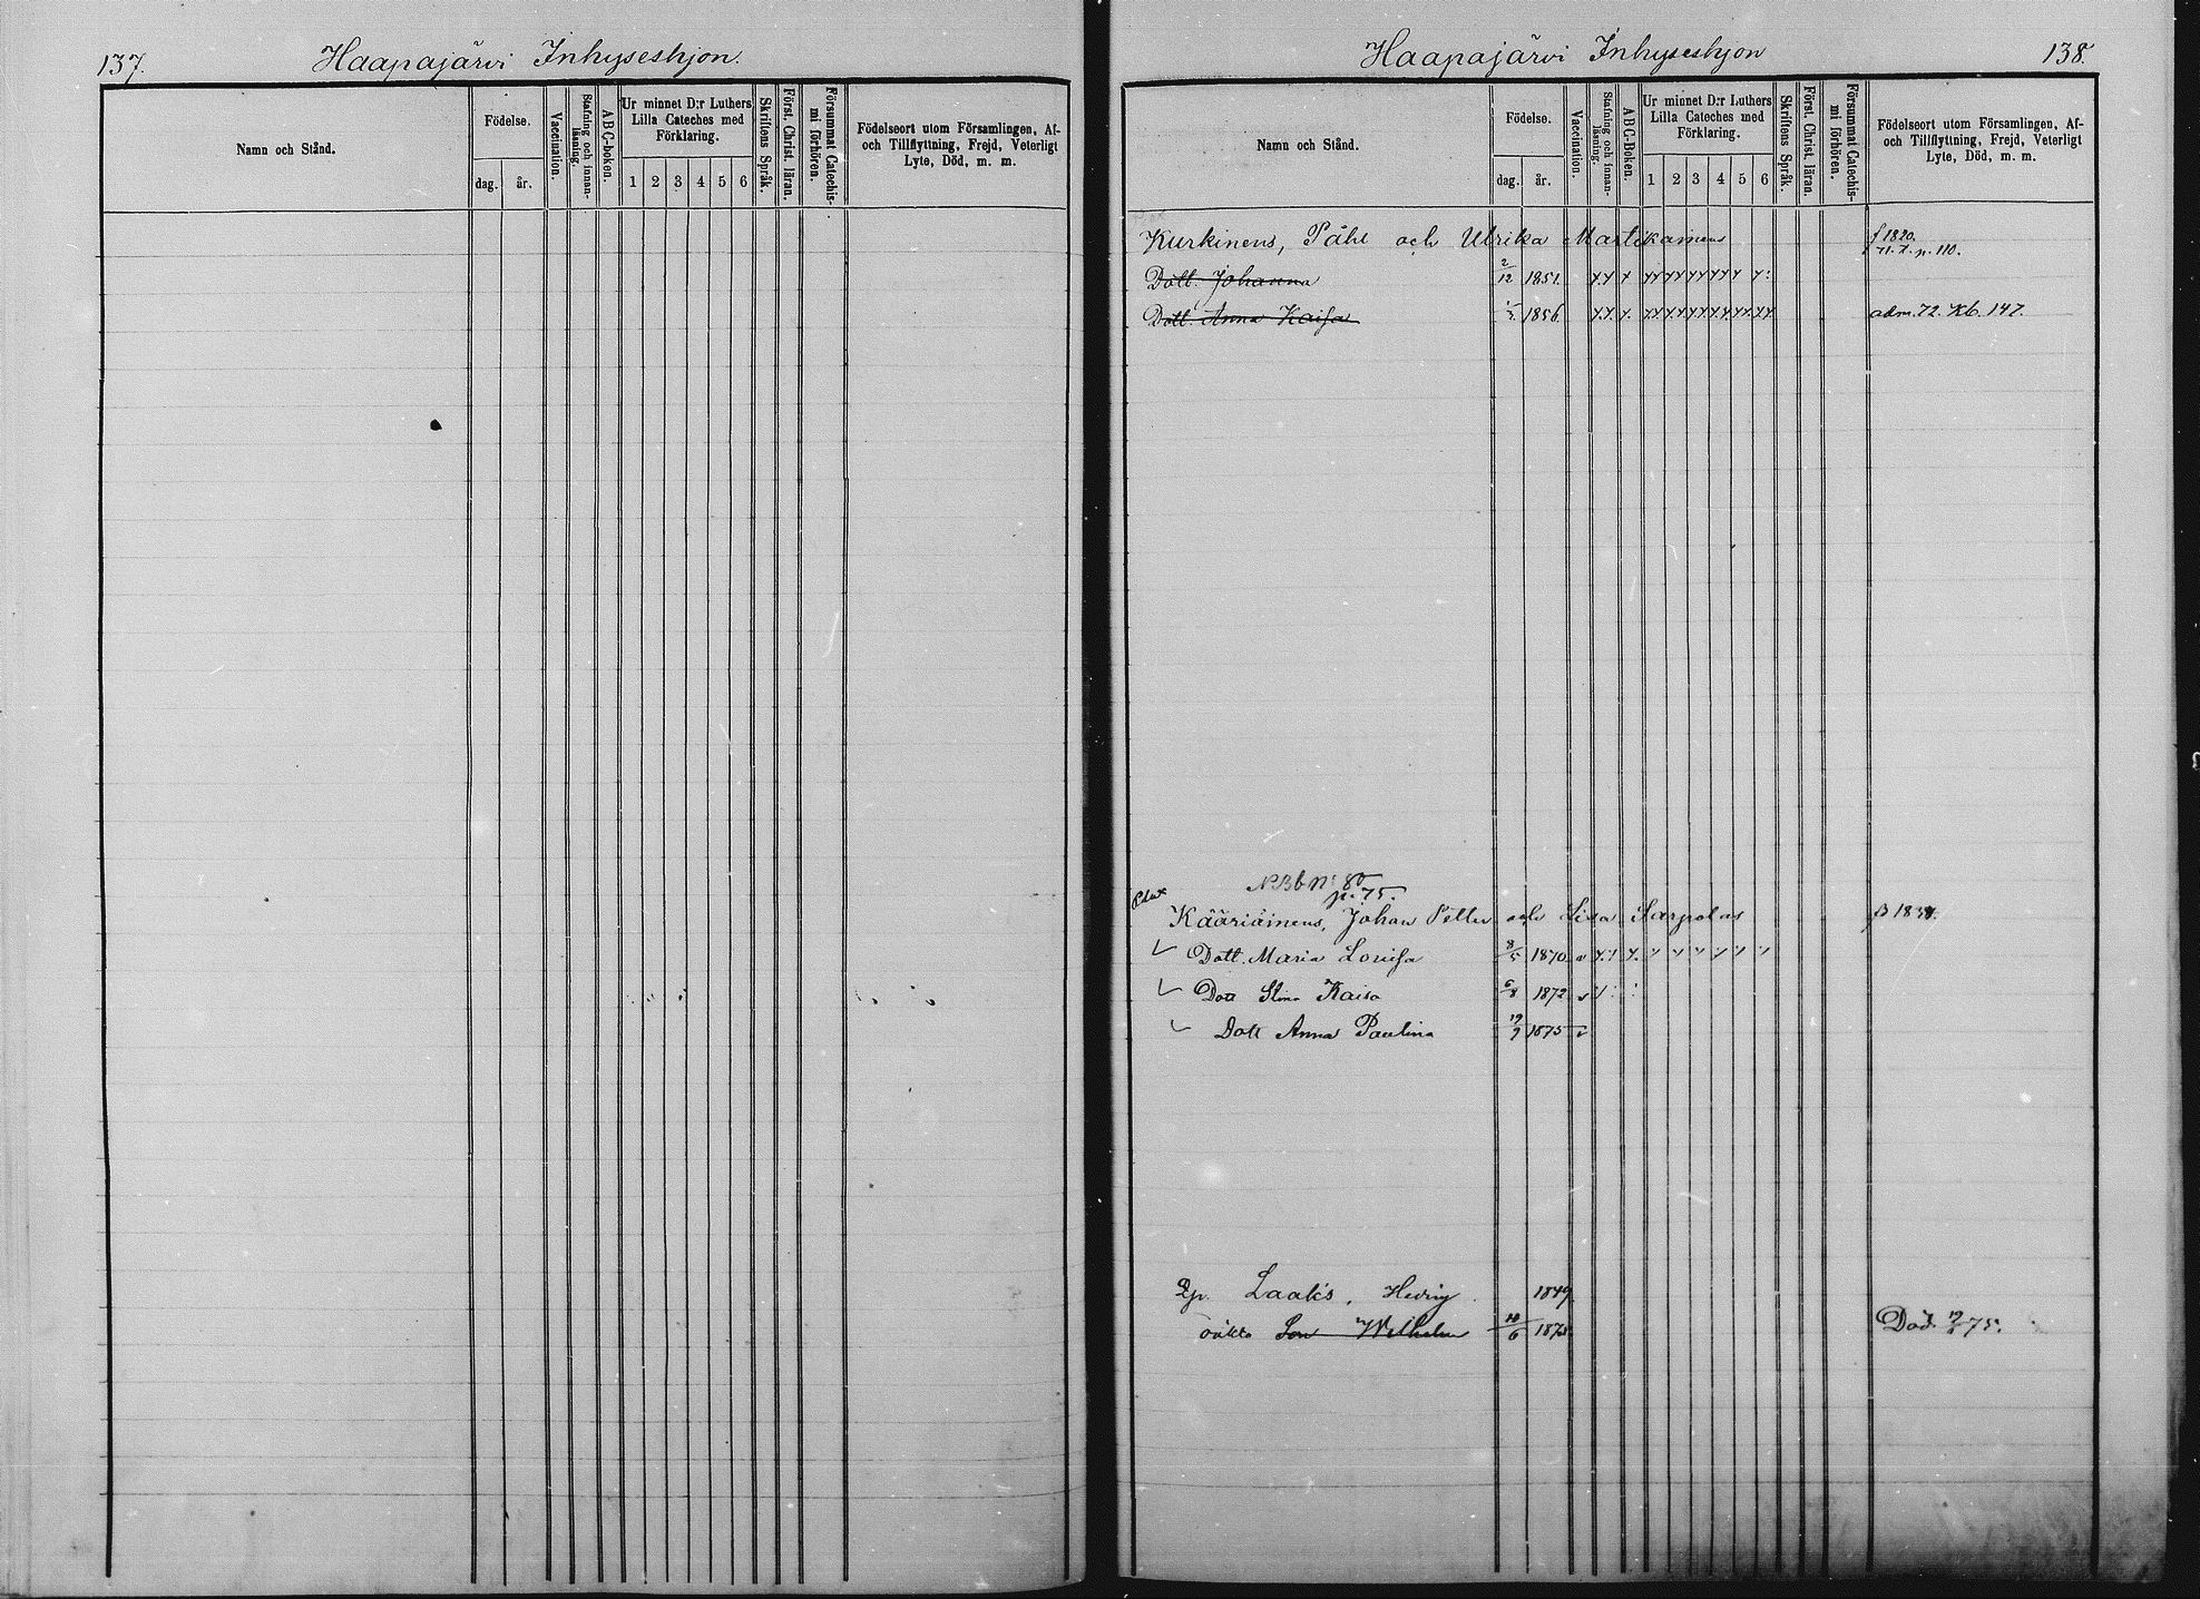 137.
Haapajärvi Inhyseshjon.
Namn och Stånd.
Födelse.
dag.
år.
Vaccination.
Stafning och innan-
läsning.
ABC-boken.
Ur minnet D:r Luthers
Lilla Cateches med
Förklaring.
1 2 3 4 5 6
Skriftens Språk.
Först. Christ. läran.
Försummat Catechis-
mi förhören.
Födelseort utom Församlingen, Af-
och Tillflyttning, Frejd, Veterligt
Lyte, Död, m. m.
Haapajärvi Inhyseshjon
138.
Namn och Stånd.
Födelse.
dag.
år.
Vaccination.
Stafning och innan-
läsning.
ABC-Boken.
Ur minnet D:r Luthers
Lilla Cateches med
Förklaring.
1 2 3 4 5 6
Skriftens Språk.
Först. Christ. läran.
Försummat Catechis-
mi förhören.
Födelseort utom Församlingen, Af-
och Tillflyttning, Frejd, Veterligt
Lyte, Död, m. m.
Kurkinens, Påhl och Ulrika Martikainens f 1820.
p. 110.
Dott. Johanna 2/12 1851.
Dott. Anna Kaisa 1856. adm. 72. Kb. 147.
p. 75.
Kääriäinens, Johan Petter och Lisa Sarpolas
Dott. Maria Lovisa 8/5 1870
Dott Stina Kaisa 6/8 1872
Dott Anna Paulina 19/9 1875
Laaks, Hedvig 1849.
oäkta Son Wilhelm 10/6 1875 Död 75.